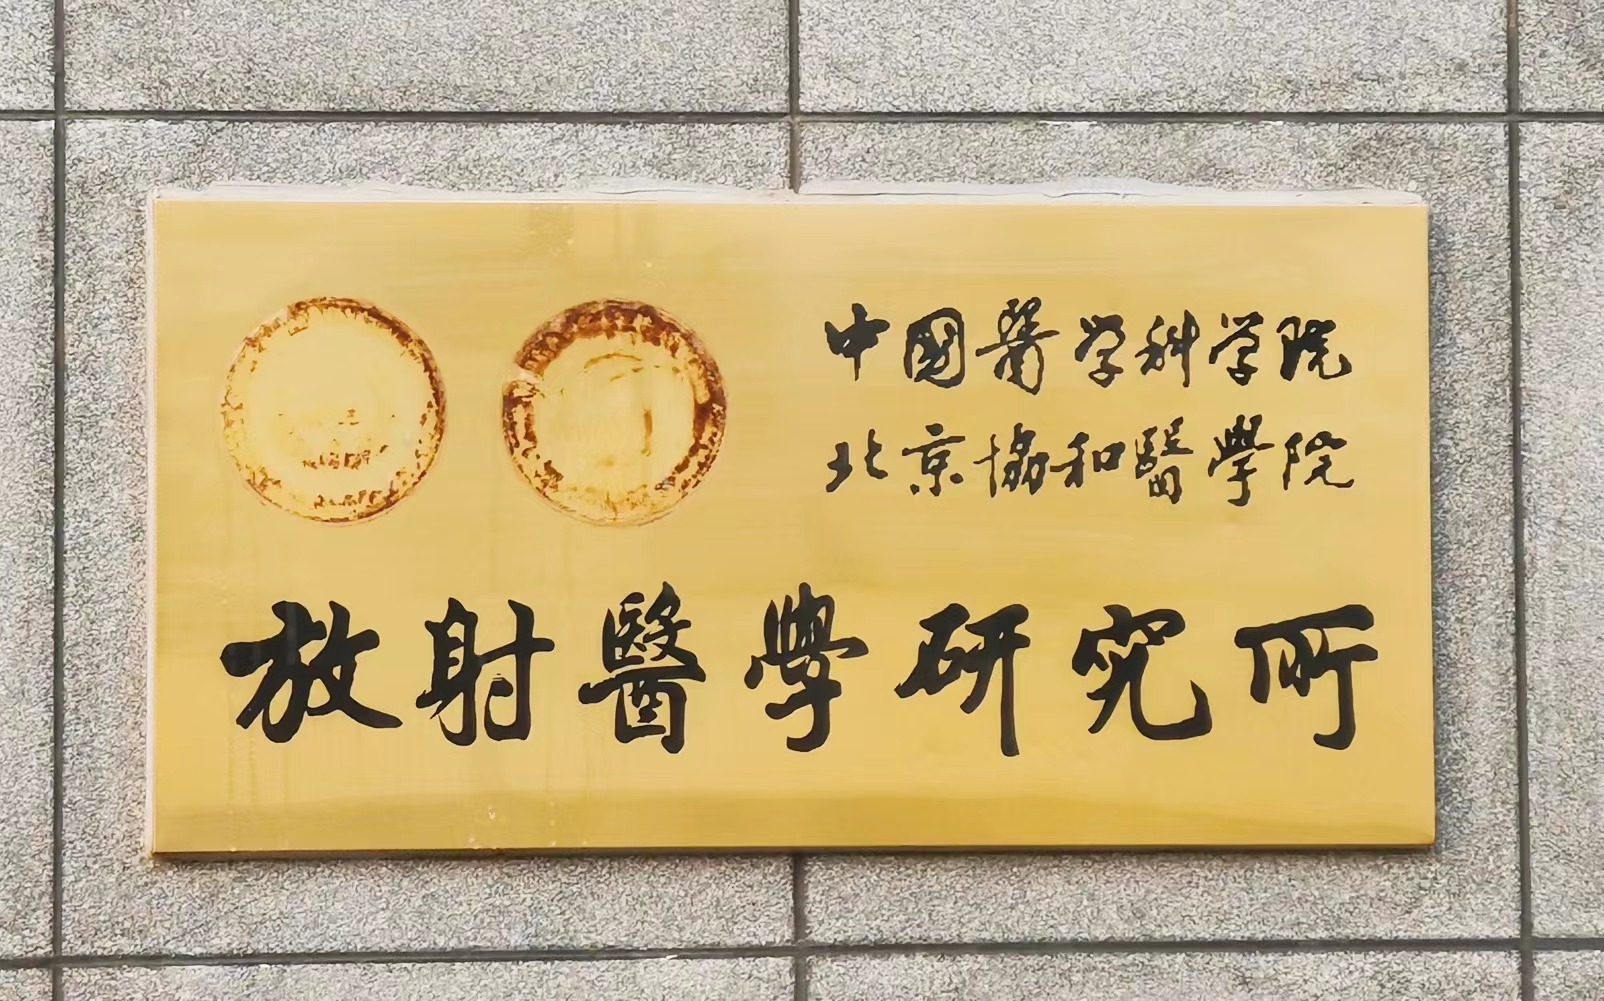 中國醫学科学院
北京協和醫學院
放射醫學研究所